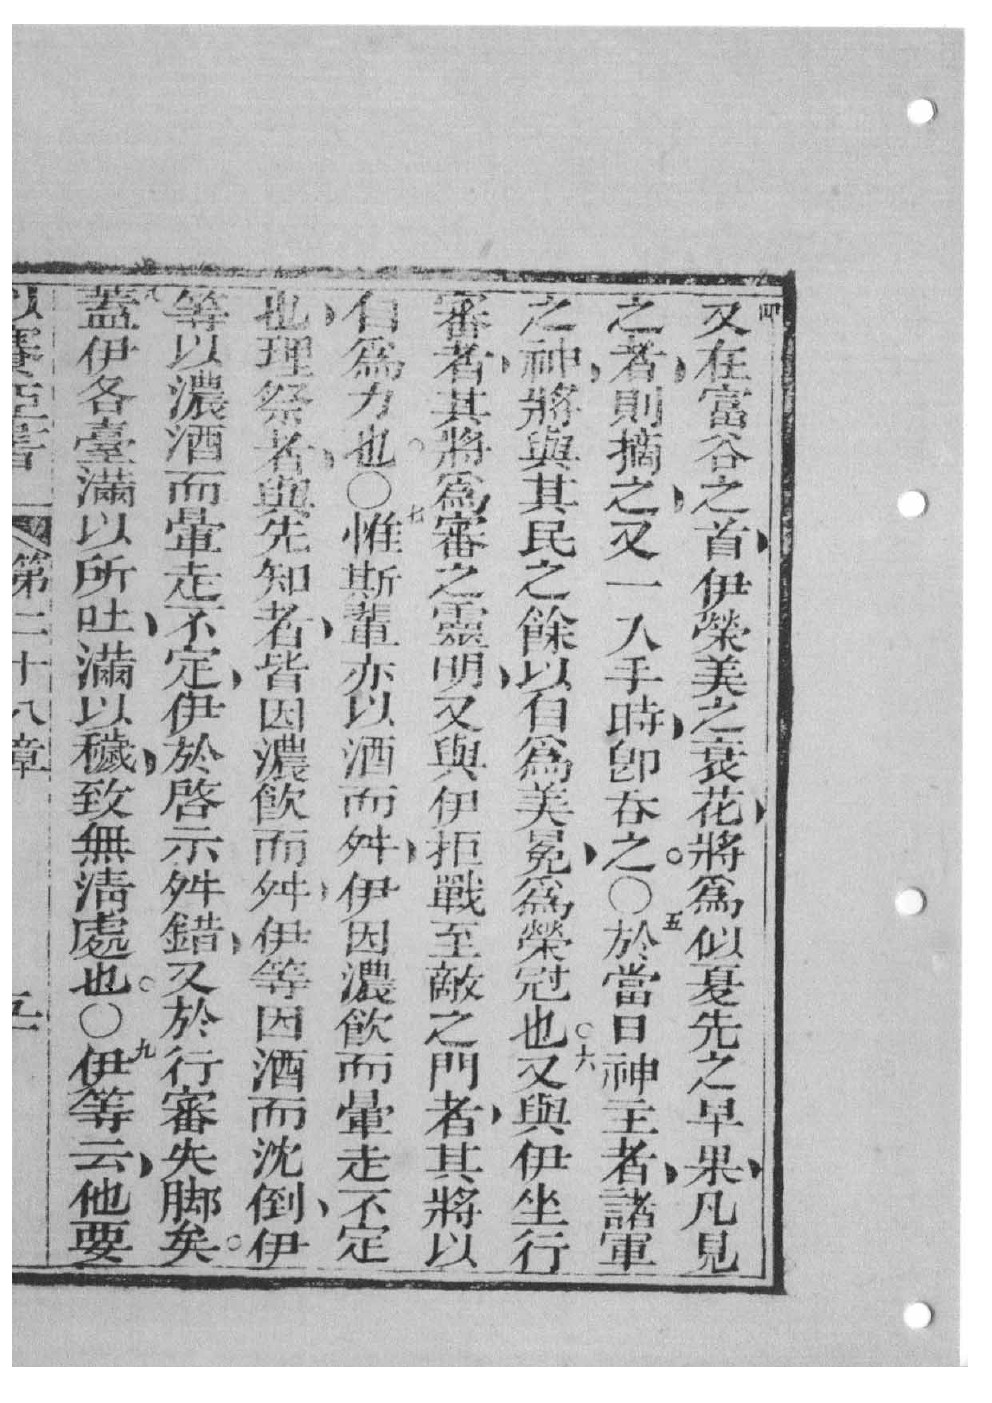 四又在富谷之首伊榮美之衰花將爲似夏先之早果凡見
之者則摘之又一入手時卽吞之。〇五於當日神主者諸軍
之神將與其民之餘以自爲美冕爲榮冠也。六又與伊坐行
審者其將爲審之靈明又與伊拒戰至敵之門者其將以
自爲力也。〇七惟斯輩亦以酒而舛伊因濃飮而暈走不定
也理祭者與先知者皆因濃飮而舛伊等因酒而沈倒伊
等以濃酒而暈走不定伊於啓示舛錯又於行審失脚矣。
八蓋伊各臺滿以所吐滿以穢致無淸處也。〇九伊等云他要
以賽亞書 第二十八章